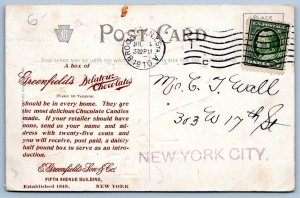 POST CARD
A box of
Greenfield's Delatour Chocolates
should be in every home. They are
the most delicious Chocolate Candies
made. If your retailer should have
none, send us your name and ad-
dress with twenty-five cents and
you will receive, post paid, a dainty
half pound box to serve as an intro-
duction.
E. Greenfield's Son & Co.
FIFTH AVENUE BUILDING,
Established 1848. NEW YORK
Mr. C. J. Wall
303 W 17th St
NEW YORK CITY.